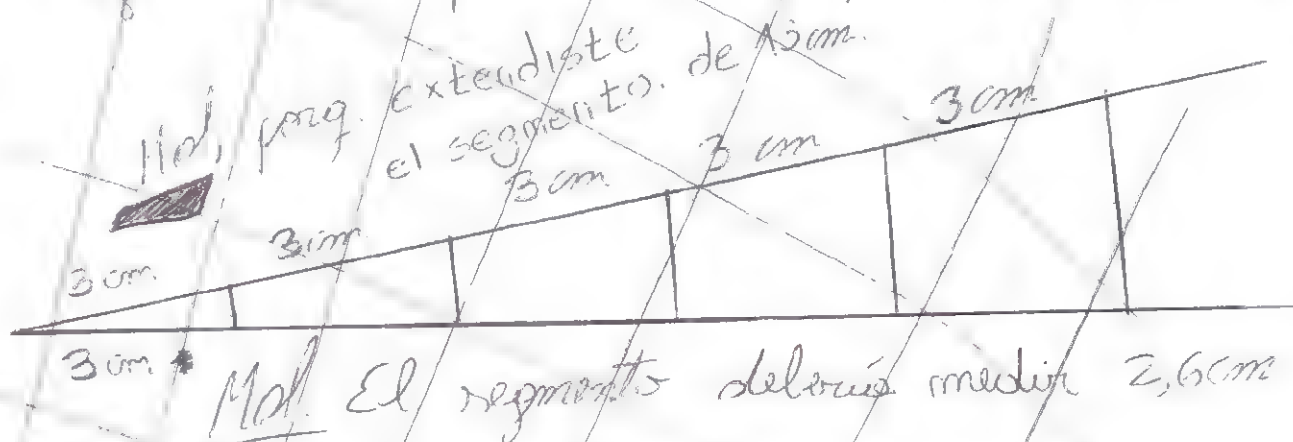 Mal, porq. extendiste
el segmento. de 13cm.
3 cm
3 cm
3 cm
3 cm
3 cm
3 cm
Mal. El segmento debería medir 2,6cm